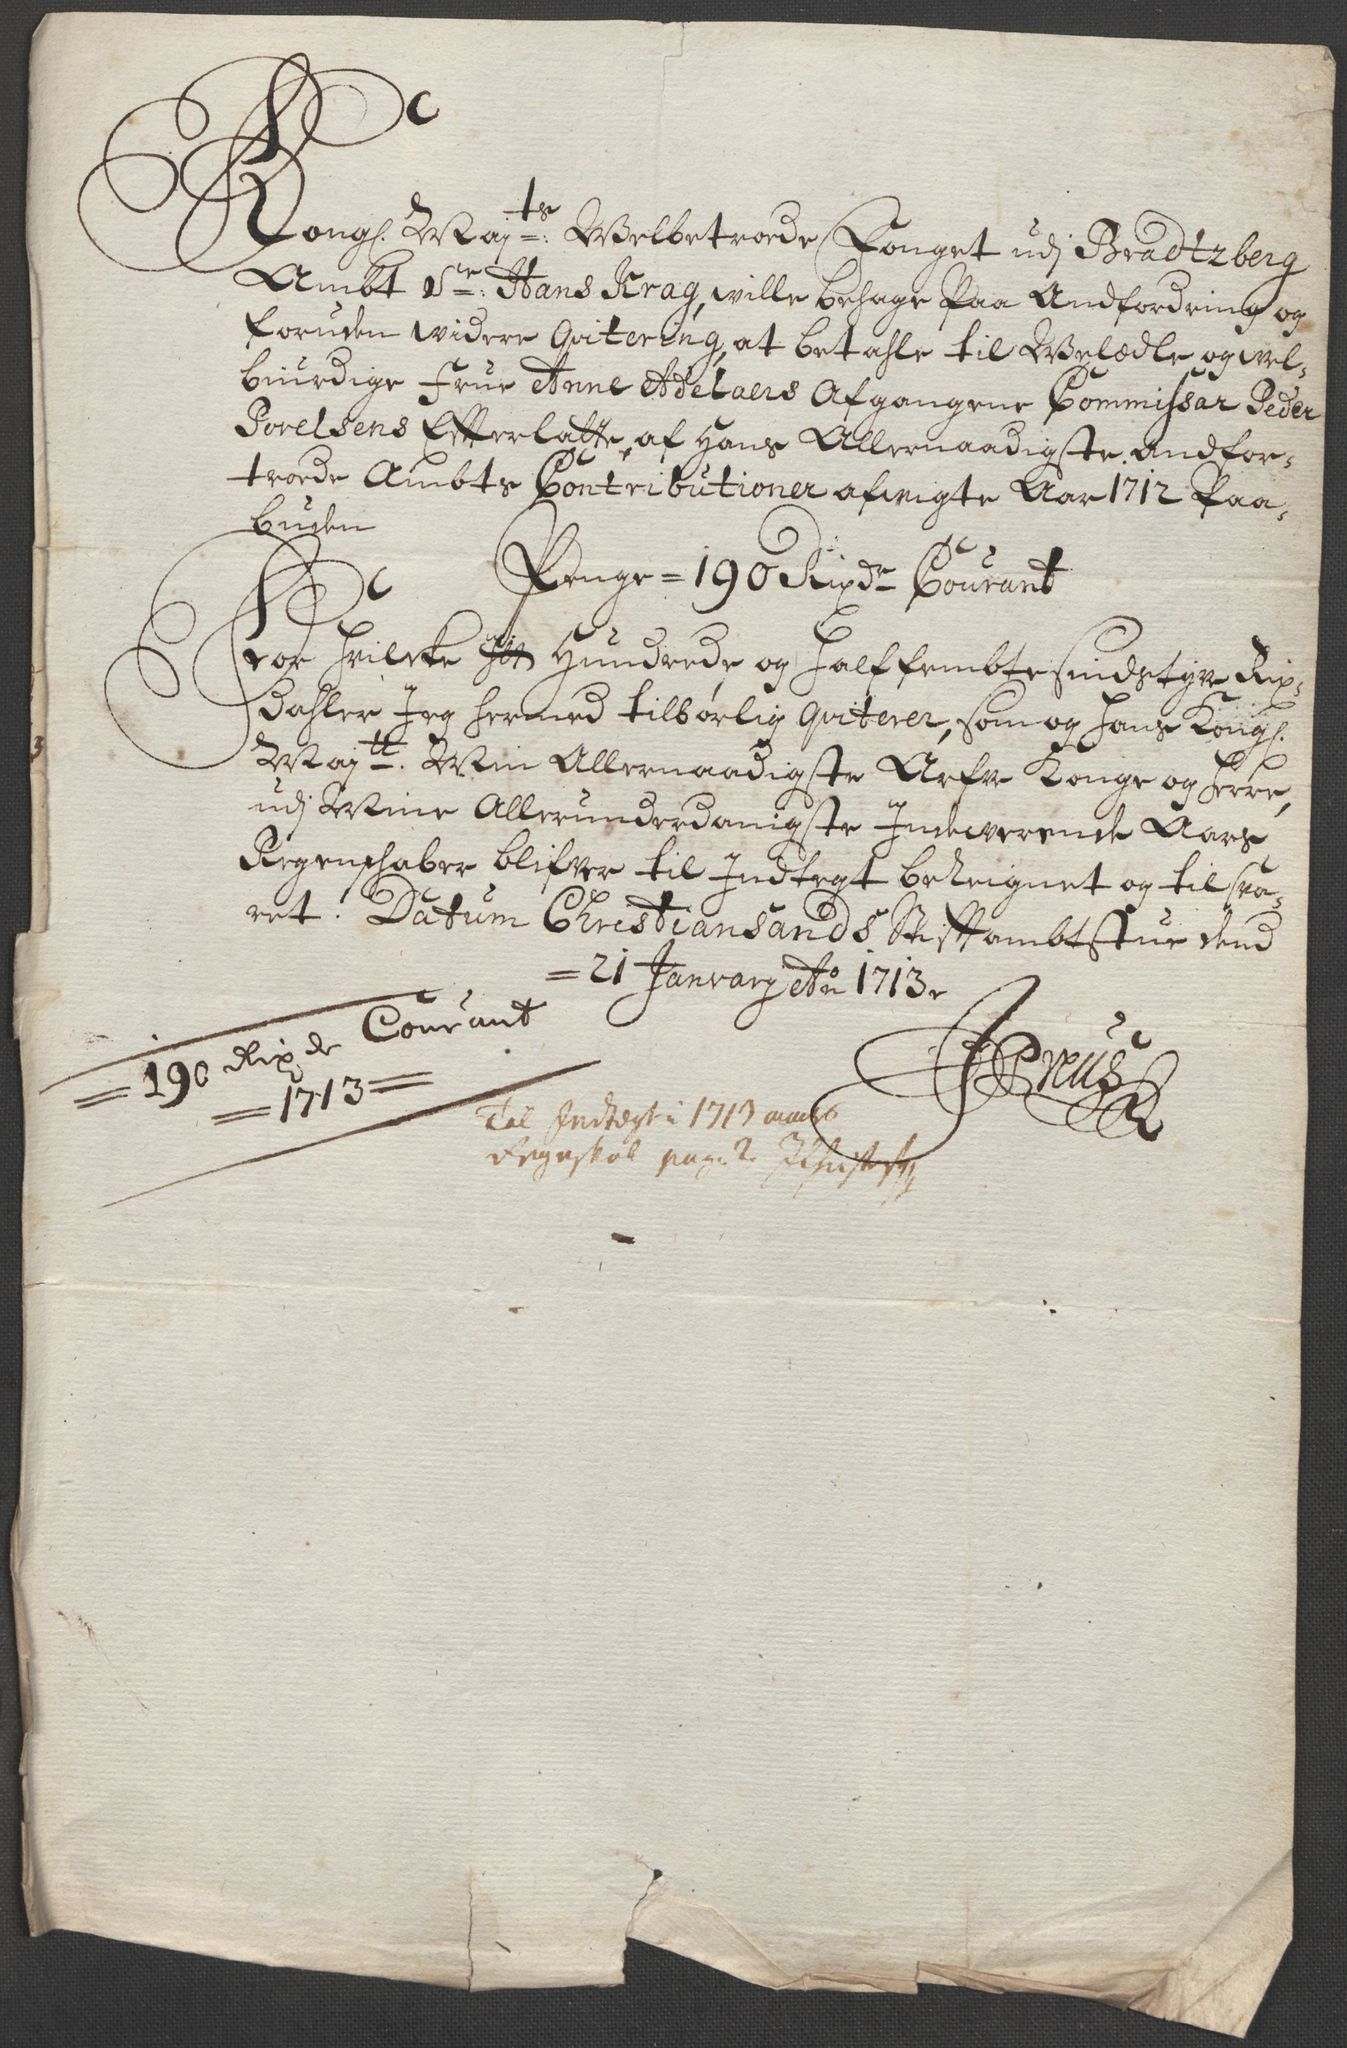 Kongl. Maj.ts Welbetroede Fouget udj Bradtzberg
Ambt Sr. Hans Krag, wille behage Paa Andfordring og
foruden widere Qvitering, at betahle til Welædle og wel-
biurdige Frue Anne Adelaers Afgangene Commissar Peder
Porelsens Efterlatte, af hans Allernaadigste andfor-
troede Ambts Contributioner afvigte Aar 1712 Paa-
buden
Penge = 190 Rixdr Courant
For hvilcke Hundrede og halffembtesindstyve Rix-
dahler Jeg hermed tilbørlig Qviterer, som og hans Kongl.
Maj.tt. Min Allernaadigste Arfve Konge og Herre,
udj Mine Allerunderdanigste Indeværende Aars
Regenschaber blifver til Indtegt bereignet og tilsva-
ret. Datum Christiansands Stiftambtstue dend
= 21 January Ao 1713.
= 190 Rixdr Courant
= 1713 =
Til Indtægt i 1713 aars
Regnskab pag. 2.